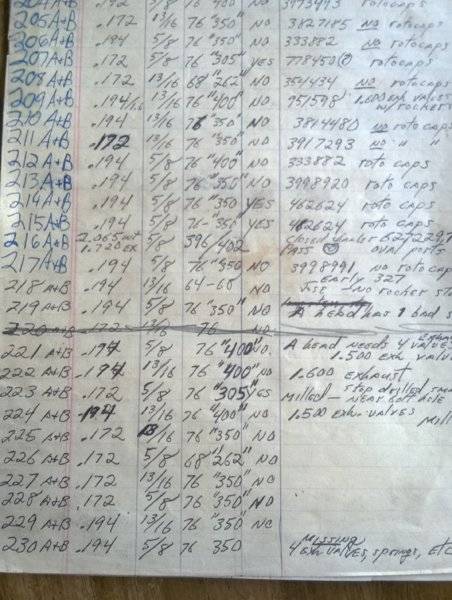 204A+B .192 5/8 76 "400" NO 3973493 rotocaps
205A+B .172 13/16 76 "350" NO 3827185 NO rotocaps
206A+B .194 5/8 76 "350" NO 333882 rotocaps
207A+B .172 5/8 76 "305" YES 778450 rotocaps
208A+B .172 13/16 68 "262" NO 354434 NO rotocaps
209A+B .194 13/16 76 "400" NO 751598 1.600 exh valves
w/rockers
210A+B .194 13/16 76 "350" NO 3814480 NO roto caps
211A+B .172 13/16 76 "350" NO 3917293 NO " "
212A+B .194 5/8 76 "400" NO 333882 roto caps
213A+B .194 5/8 76 "350" NO 3998920 roto caps
214A+B .194 5/8 76 "350 YES 462624 roto caps
215A+B .194 5/8 76 "350 YES 462624 roto caps
216A+B 2.065 1.720 EX 5/8 396/402 closed chamber
PASS oval ports
217A+B .194 5/8 76 "350 NO 3998991 no rotocaps
218 A+B .194 13/16 64-68 NO early 327
USE - NO rocker
219 A+B .194 5/8 76 "350 NO A head has 1 bad
220 A+B .172 13/16 76 NO
221 A+B .194 5/8 76 "400" NO. A head needs 4 valves
1.500 exh valve
222 A+B .194 13/16 76 "400" NO 1.600 exhaust
223 A+B .172 5/8 76 "305" YES Milled - step drilled
near bolt hole
224 A+B .194 13/16 76 "400" NO 1.500 exh. valves
225 A+B .172 13/16 76 "350" NO
226 A+B .172 5/8 68 "262" NO
227 A+B .172 13/16 76 "350" NO
228 A+B .172 5/8 76 "350" NO
229 A+B .194 13/16 76 "350" NO
230 A+B .194 5/8 76 350 MISSING
4 exh VALVES, springs, Etc